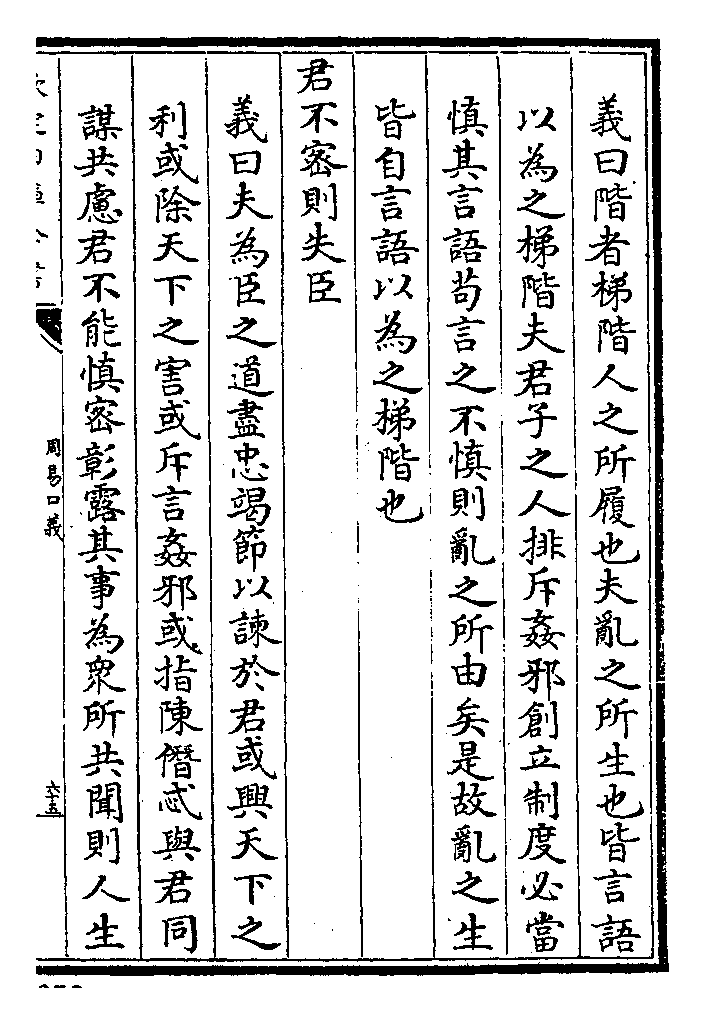 義曰階者梯階人之所履也夫亂之所生也皆言語
以為之梯階夫君子之人排斥姦邪創立制度必當
慎其言語茍言之不慎則亂之所由矣是故亂之生
皆自言語以為之梯階也
君不密則失臣
義曰夫為臣之道盡忠竭節以諫於君或興天下之
利或除天下之害或斥言姦邪或指陳僭忒與君同
謀共慮君不能慎密彰露其事為衆所共聞則人生
周易口義
六十五